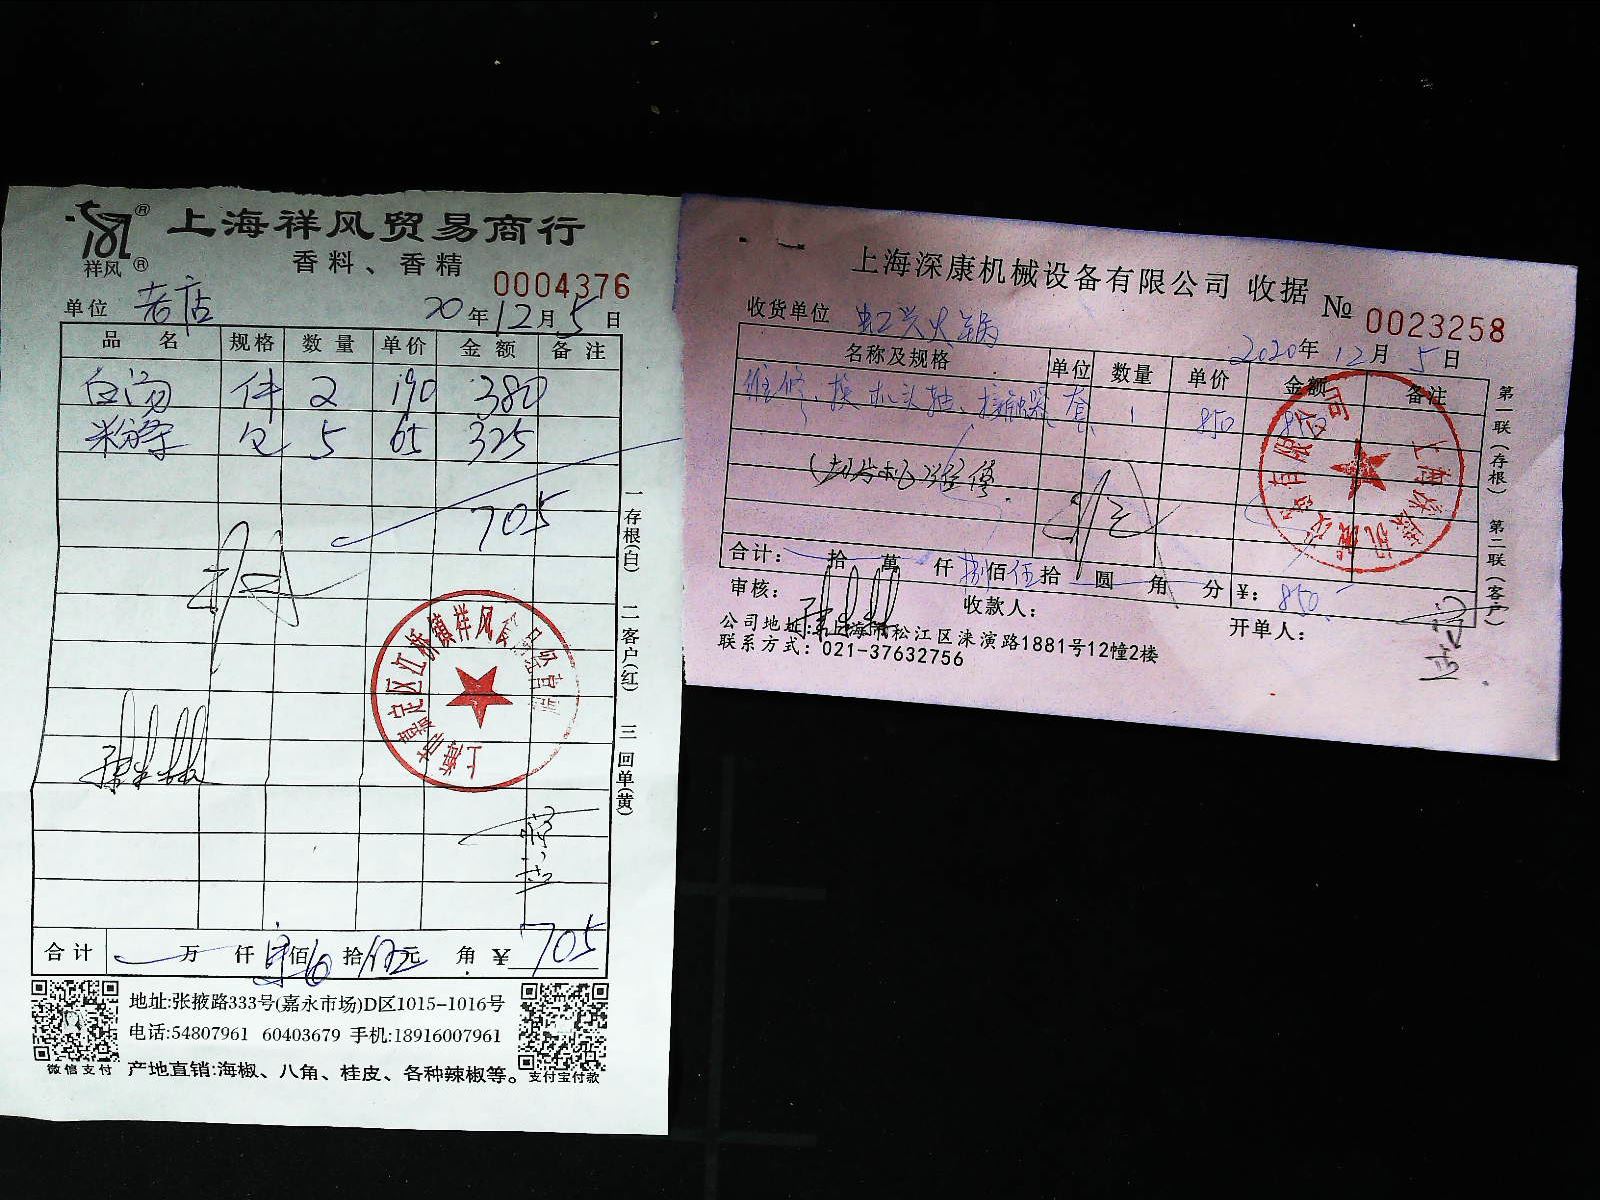 祥风
上海祥风贸易商行
香料、香精
0004376
单位 老店 20年12月5日
品名 规格 数量 单价 金额 备注
白汤 件 2 190 380
粉条 包 5 65 325
705
一存根(白) 二客户(红) 三回单(黄)
合计 万 仟 柒佰 拾伍元 角 ¥705
地址:张掖路333号(嘉永市场)D区1015-1016号
电话:54807961 60403679 手机:18916007961
产地直销:海椒、八角、桂皮、各种辣椒等。
微信支付
支付宝付款
上海深康机械设备有限公司 收据 № 0023258
收货单位 虹兴火锅
2020年12月5日
名称及规格 单位 数量 单价 金额 备注
维修、换机头轴、接触器 套 1 850 850
第一联(存根) 第二联(客户)
合计: 拾 萬 仟 捌佰伍拾 圆 角 分 ¥: 850
审核: 收款人: 开单人:
公司地址:上海市松江区涞演路1881号12幢2楼
联系方式:021-37632756